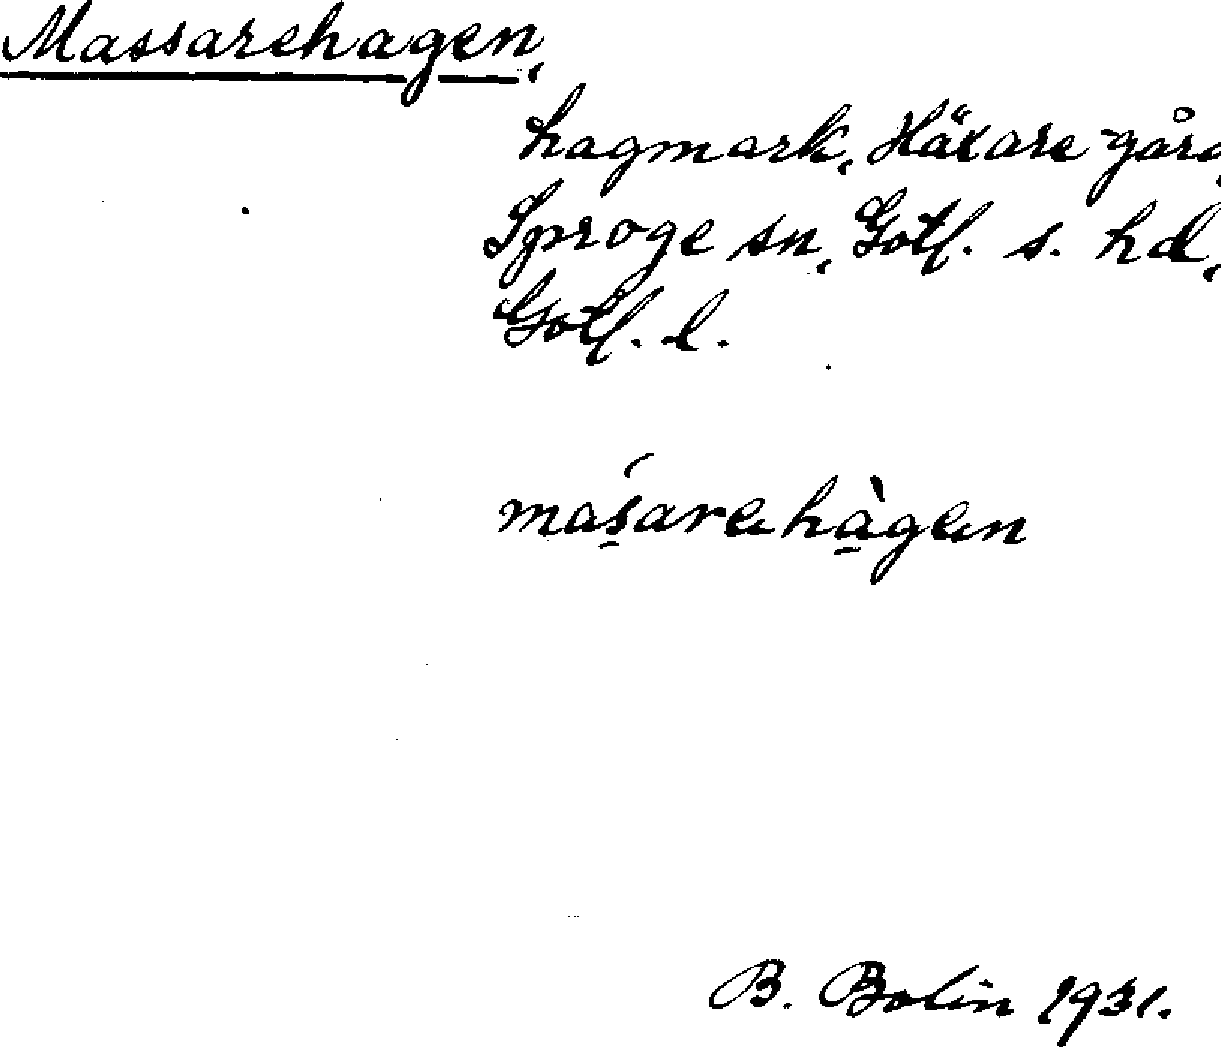 Massarehagen,
hagmark, Häxare gård,
Sproge sn, Gotl. s. hd,
Gotl. l.
masarehàgen
B. Bolin 1931.